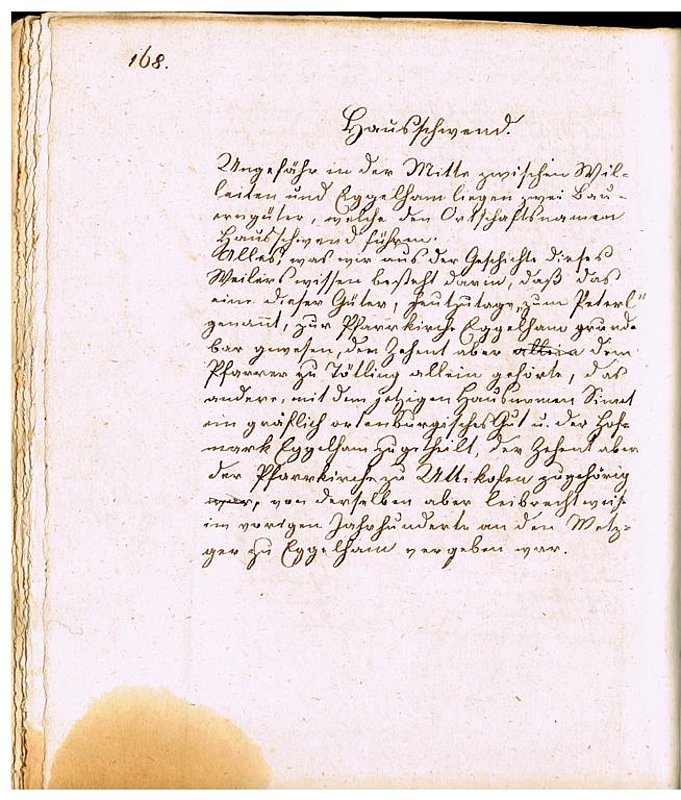 168.
Hausschwend.
Ungefähr in der Mitte zwischen Wil-
leiten und Eggelham liegen zwei Bau-
erngüter, welche den Ortschaftsnamen
Hausschwend führen.
Alles, was wir aus der Geschichte dieses
Weilers wissen besteht darin, daß das
eine dieser Güter, heutzutage „zum Peterl"
genannt, zur Pfarrkirche Eggelham grund-
bar gewesen, den Zehent aber allein dem
Pfarrer zu Tötling allein gehörte, das
andere, mit dem jetzigen Hausnamen Simet
ein gräflich ortenburgisches Gut u. der Hof-
mark Eggelham zugetheilt, der Zehent aber
der Pfarrkirche zu Uttikofen zugehörig
war, von derselben aber leibrechtweis
im vorigen Jahrhunderte an den Metz-
ger zu Eggelham vergeben war.